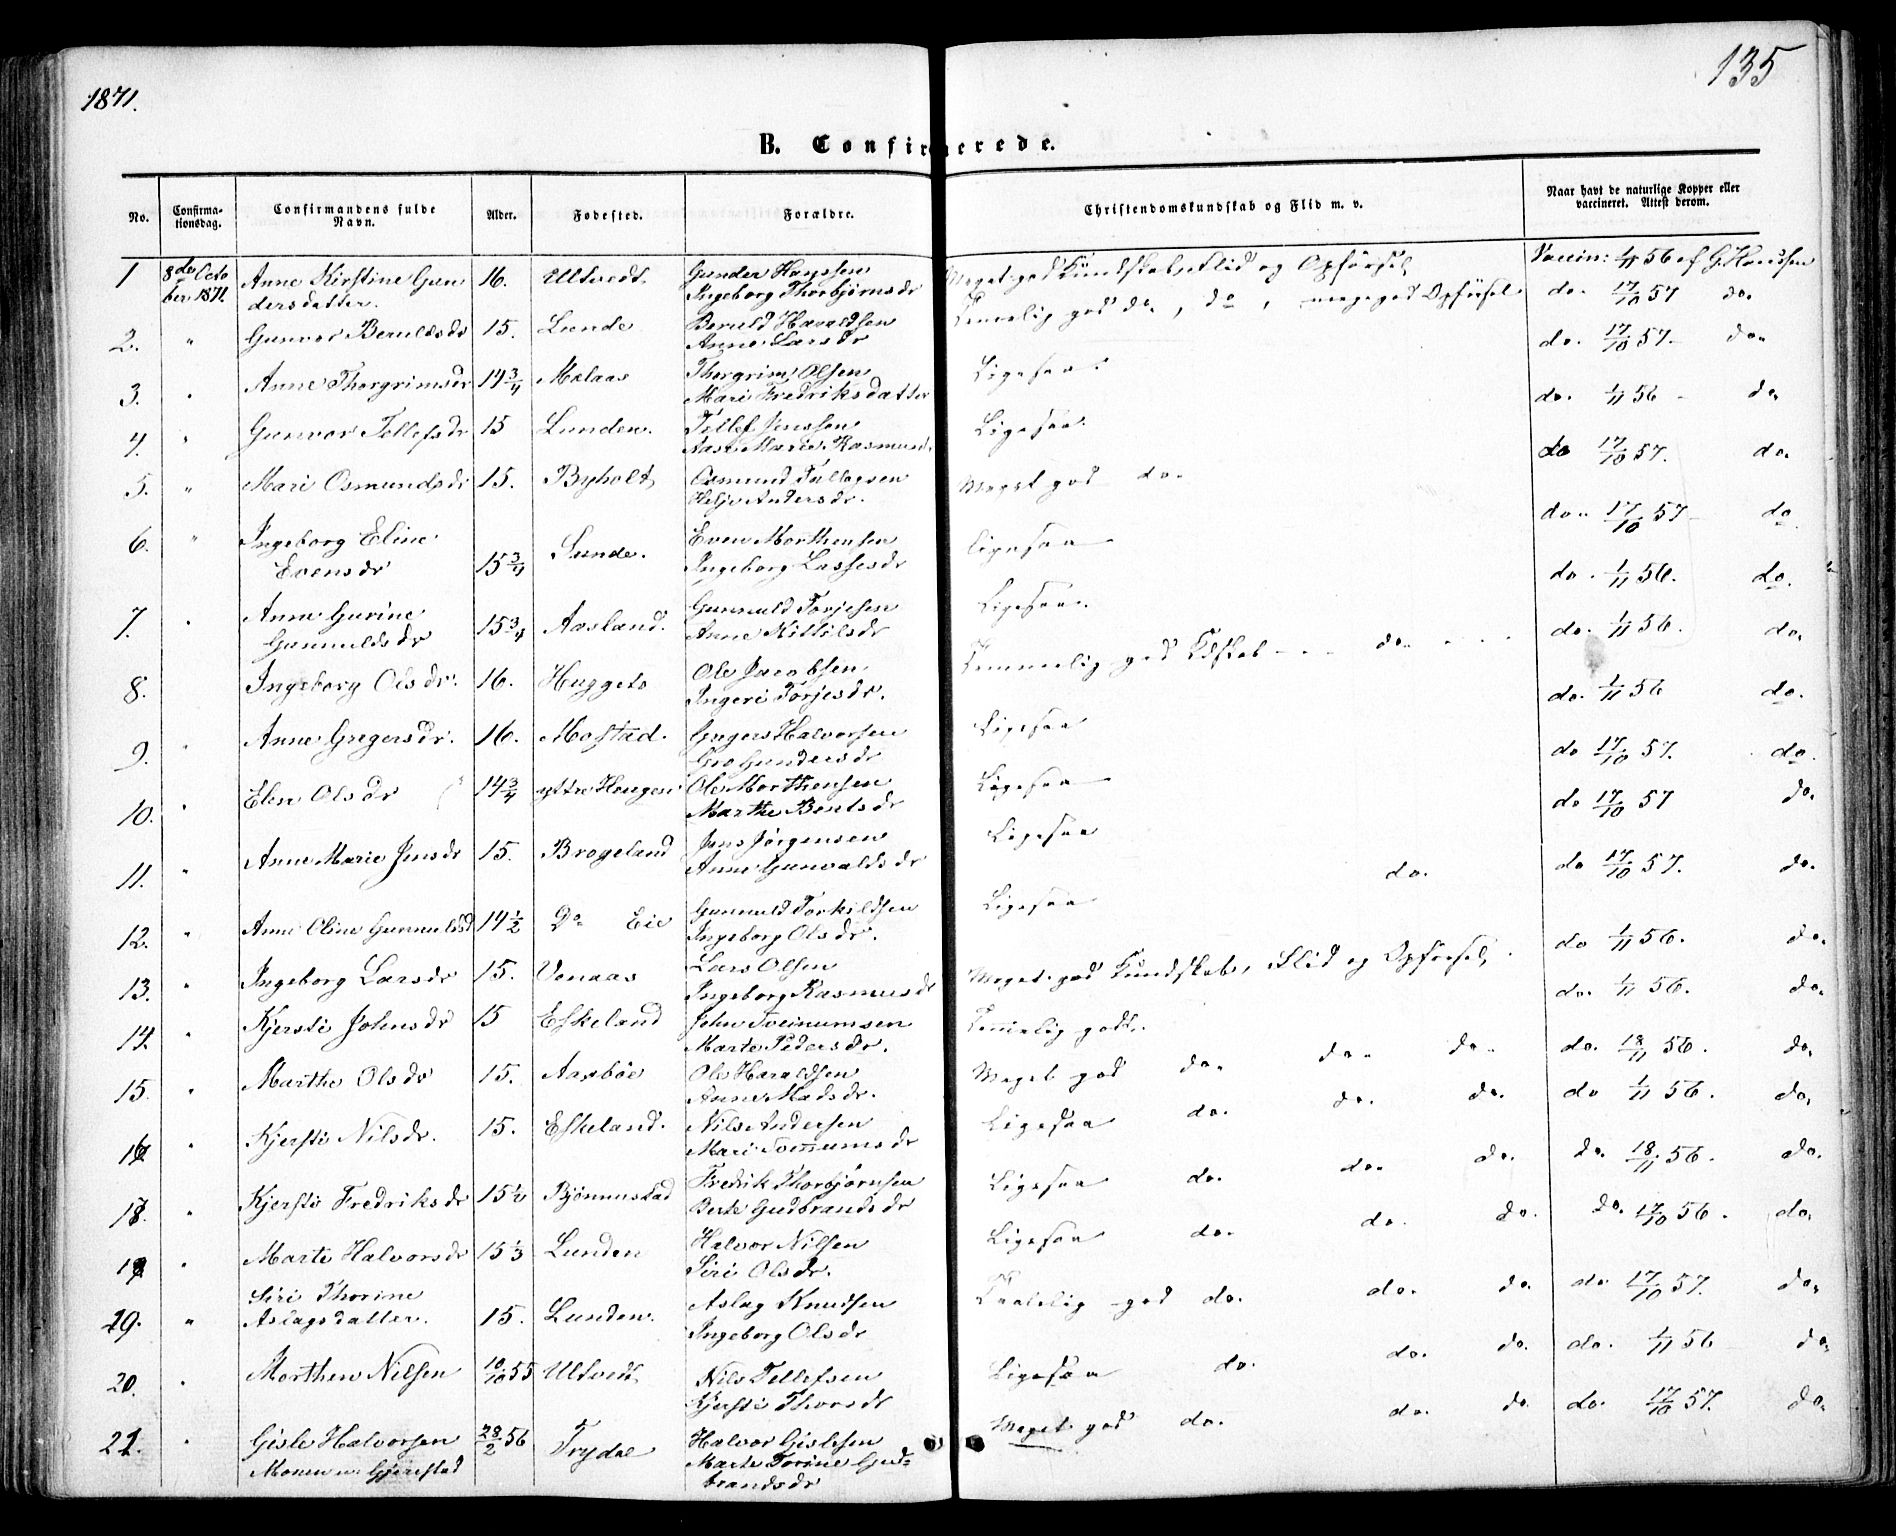 1871.
135
B. Confirmerede.
No.
Confirma-
tionsdag.
Confirmandens fulde
Navn.
Alder.
Fødested.
Forældre.
Christendomskundskab og Flid m. v.
Naar havt de naturlige Kopper eller
vaccineret. Attest derom.
1 8de Octo Anne Kirstine Gun 16. Ultvedt Gunder Hansen Meget god Kundskab, Flid og Opførsel Vaccin: 1/11 56 af G. Knudsen
ber 1871. dersdatter. Ingeborg Thorbjørnsdr
2. " Gunvor Beruldsdr 15. Lunde Beruld Haraldsen Temmelig god do, do, meget god Opførsel do. 17/10 57 do.
Anne Larsdr
3. " Anne Thorgrimsdr 14 3/4 Molaas Thorgrim Olsen Ligesaa. do. 17/10 57. do.
Mari Fredriksdatter
4. " Gunvor Tellefsdr 15 Lunden. Tellef Jenssen Ligesaa. do. 1/11 56 do.
Aase Marie Rasmusdr
5. " Mari Osmundsdr 15. Byholt Osmund Tallagsen Meget god do. do 17/10 57. do.
Helje Andersdr.
6. " Ingeborg Eline Sunde. Even Morthensen ligesaa do. 17/10 57 do.
Evensdr 15 3/4 Ingeborg Lassesdr
7. " Anne Gurine Gunnuld Torjesen Ligesaa. do. 1/11 56. do.
Gunnuldsdr 15 3/4 Aasland. Anne Kittilsdr
8. " Ingeborg Olsdr. 16. Huggeto Ole Jacobsen Temmelig god Kdskab do. do. 1/11 56. do.
Ingeri Torjesdr.
9. " Anne Gregersdr. 16. Mostad. Gregers Halvorsen Ligesaa do. 1/11 56 do.
Gro Gundersdr
10. " Elen Olsdr 14 3/4 ytre Haugen Ole Morthensen Ligesaa do 17/10 57. do.
Marthe Bentsdr
11. " Anne Marie Jensdr 15. Brogeland Jens Jørgensen Ligesaa do 17/10 57 do.
Anne Gunvaldsdr
12. " Anne Oline Gunnulsd 14 1/2 Do Eie Gunnuld Torkildsen Ligesaa do. do 17/10 57. do.
Ingeborg Olsdr.
13. " Ingeborg Larsdr 15. Vonaas Lars Olsen Meget god Kundskab, Flid og Opførsel, do 1/11 56. do.
Ingeborg Rasmusdr
14. " Kjersti Johnsdr 15 Eskeland John Tveinumsen Temmelig god do. 1/11 56. do.
Marte Pedersdr.
15. " Marthe Olsdr 15. Aasbøe Ole Haraldsen Meget god do. do. do. do. 18/11 56. do.
Anne Madsdr.
16 " Kjersti Nilsdr. 15. Eskeland. Nils Andersen Ligesaa do. do. do. do 1/11 56. do.
Mari Tveinumsdr
18. " Kjersti Fredriksdr 15 1/2 Bjønnustad Fredrik Thorbjørnsen Ligesaa do. do. do. do. 18/11 56. do.
Berte Gudbrandsdr
19 " Marte Halvorsdr 15 1/3 Lunden Halvor Nilsen Ligesaa do. do. do. do. 17/10 56. do.
Siri Olsdr.
Siri Thorine
19. " Aslagsdatter. 15. Lunden. Aslag Knudsen Temmelig god do. do. do. do. 17/10 57. do.
Ingeborg Olsdr
20. " Morthen Nilsen 10/10 55 Ultvedt Nils Tellefsen Ligesaa do. do. do. do. 1/11 56 do.
Kjersti Thorsdr
21. " Gisle Halvorsen 28/2 56 Trydal Halvor Gislesen Meget god do. do. do. do. 17/10 57. do.
Monen Gjerestad Marte Torine Gud-
brandsdr